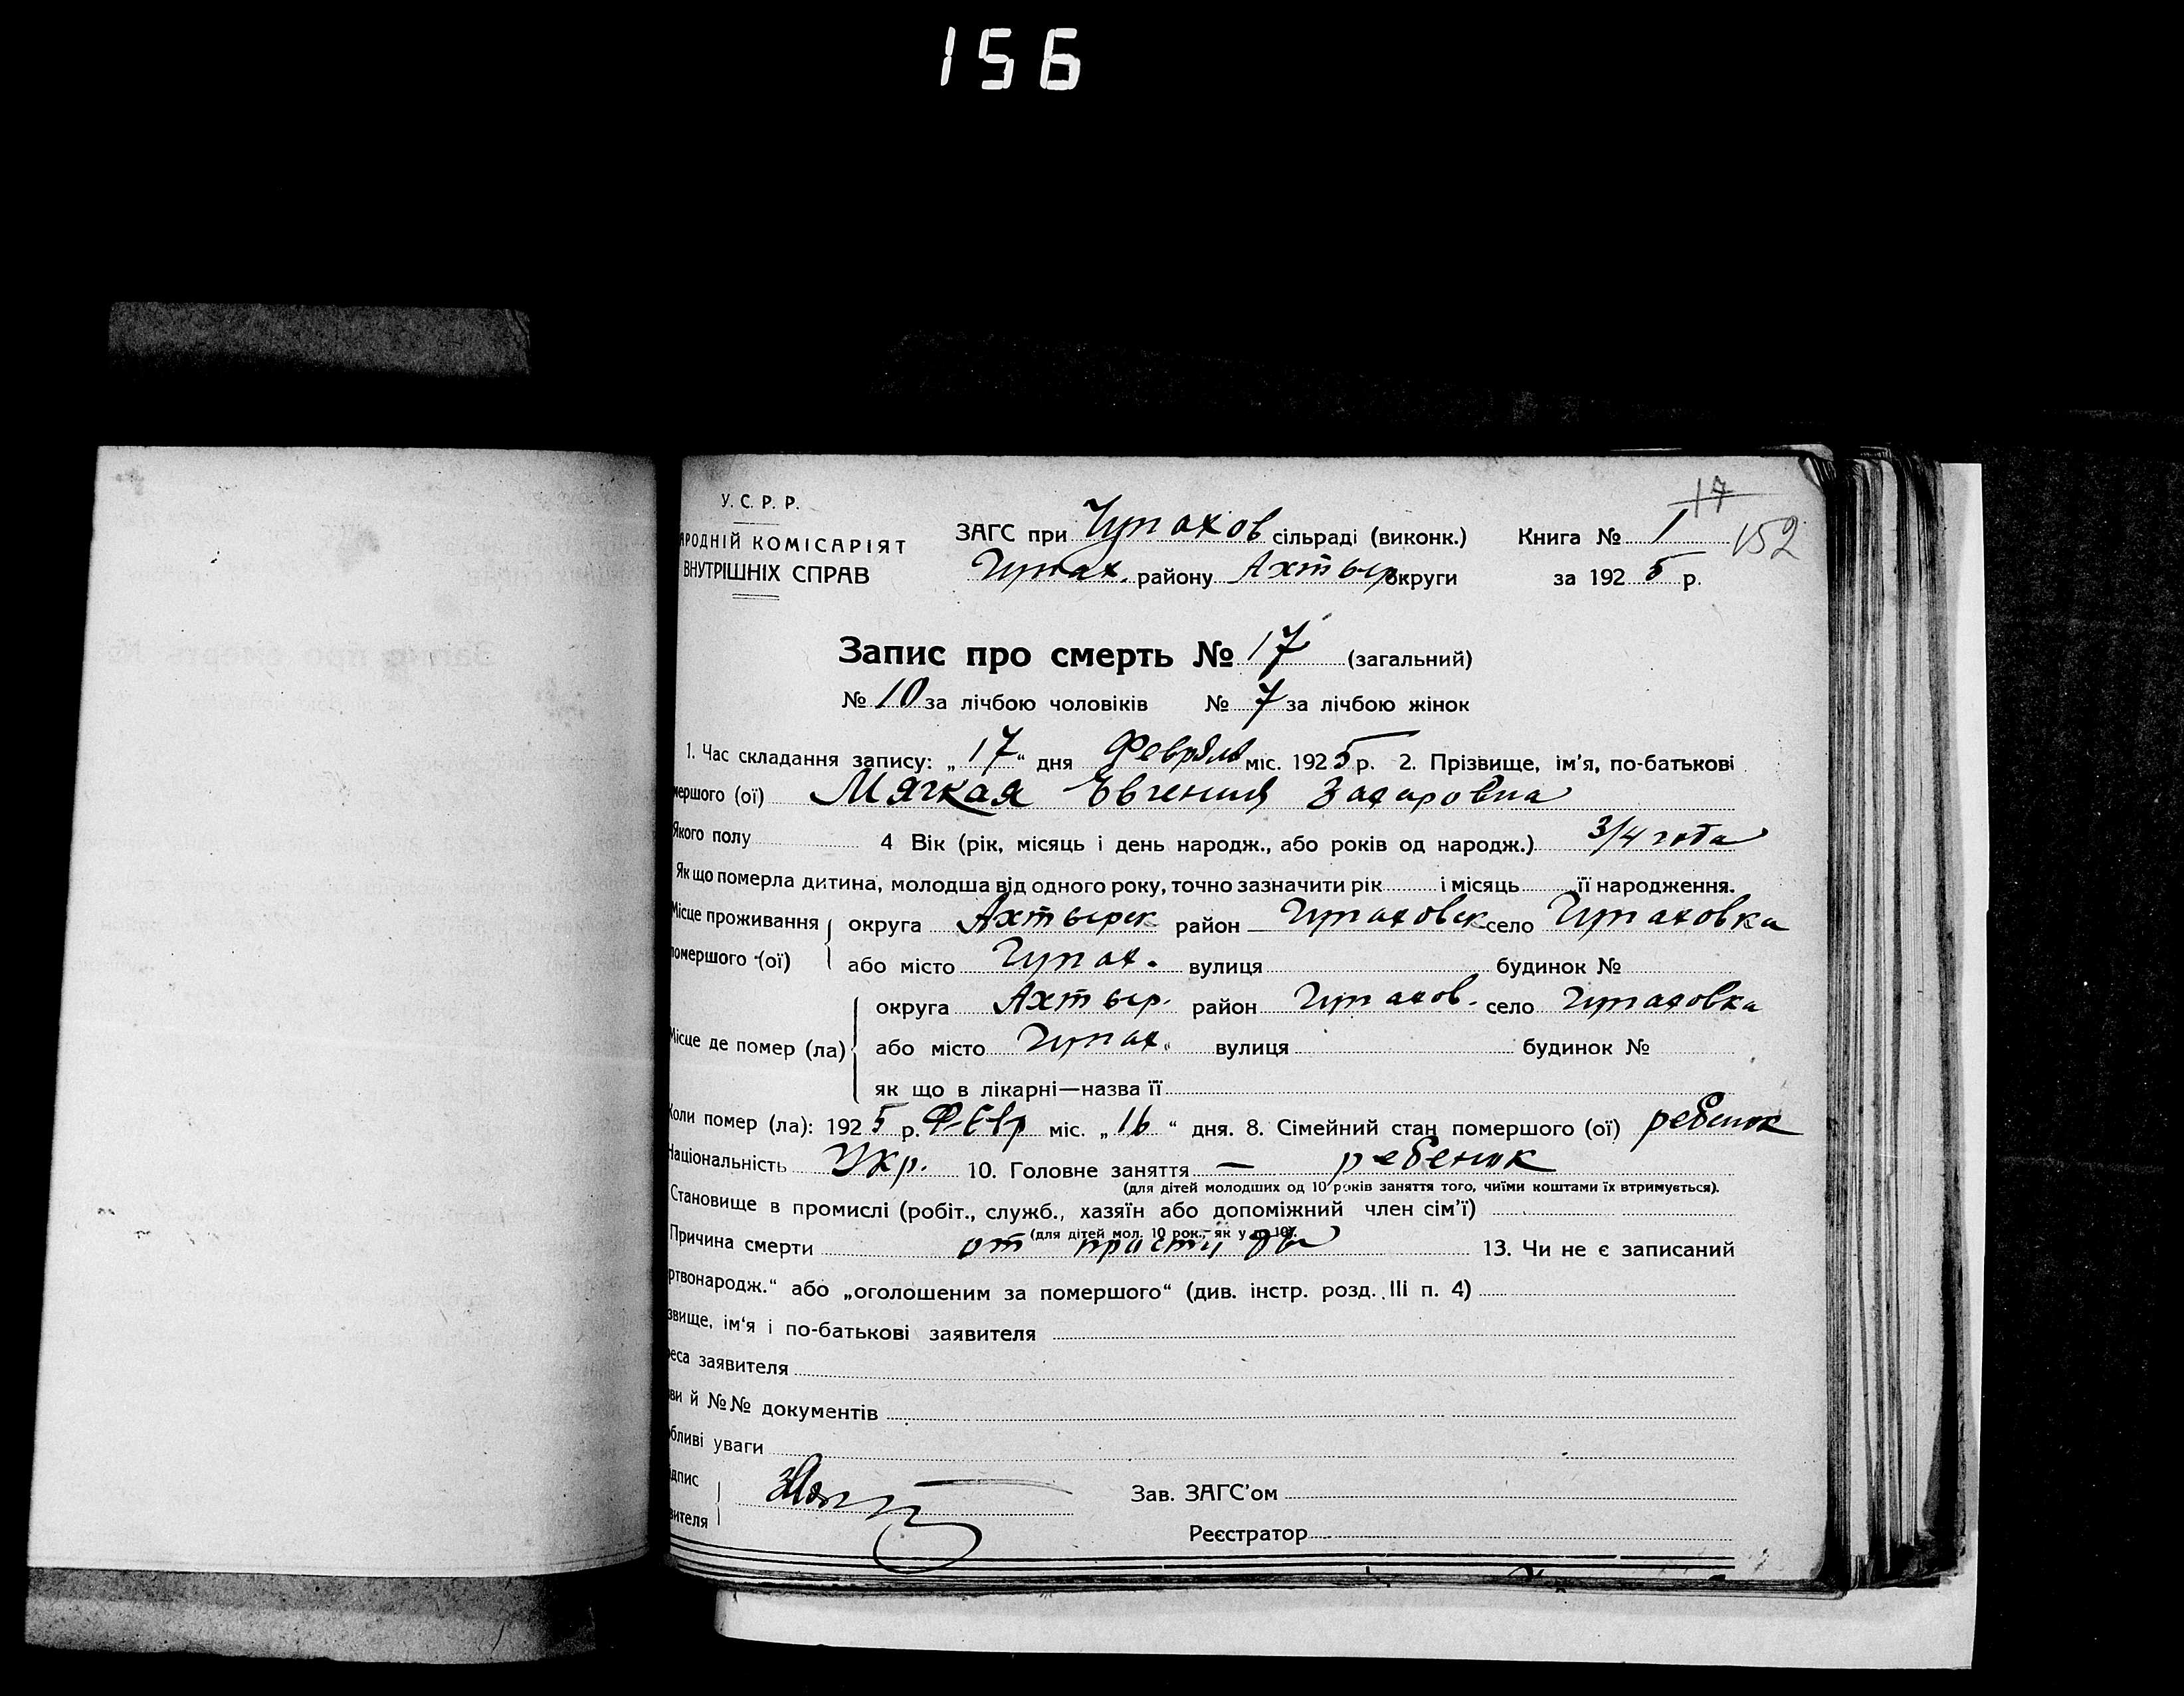 156
17
У. С. Р. Р.
АРОДНІЙ КОМІСАРІЯТ
ВНУТРІШНІХ СПРАВ
ЗАГС при Чупахов сільраді (виконк.) Книга № 1 152
Чупах. району Ахтыр округи за 1925 р.
Запис про смерть № 17 (загальний)
№ 10 за лічбою чоловіків № 7 за лічбою жінок
1. Час складання запису: „17“ дня Февраля міс. 1925 р. 2. Прізвище, ім’я, по-батькові
мершого (ої) Мягкая Евгения Захаровна
Якого полу 4 Вік (рік, місяць і день народж., або років од народж.) 3/4 года
Як що померла дитина, молодша від одного року, точно зазначити рік і місяць її народження.
Місце проживання округа Ахтырск район Чупаховск село Чупаховка
помершого (ої) або місто Чупах. вулиця будинок №
округа Ахтыр. район Чупахов. село Чупаховка
Місце де помер (ла) або місто Чупах. вулиця будинок №
як що в лікарні—назва її
Коли помер (ла): 1925 р. Февр міс. „16“ дня. 8. Сімейний стан помершого (ої) ребенок
Національність Укр. 10. Головне заняття — ребенок
(для дітей молодших од 10 років заняття того, чиїми коштами їх втримується).
Становище в промислі (робіт., служб., хазяїн або допоміжний член сім’ї)
(для дітей мол. 10 рок., як у п. 10).
Причина смерти от простуды 13. Чи не є записаний
ртвонародж.“ або „оголошеним за помершого“ (див. інстр. розд. III п. 4)
звище, ім‘я і по-батькові заявителя
реса заявителя
ви й №№ документів
бливі уваги
ідпис
вителя
Зав. ЗАГС’ом
Реєстратор